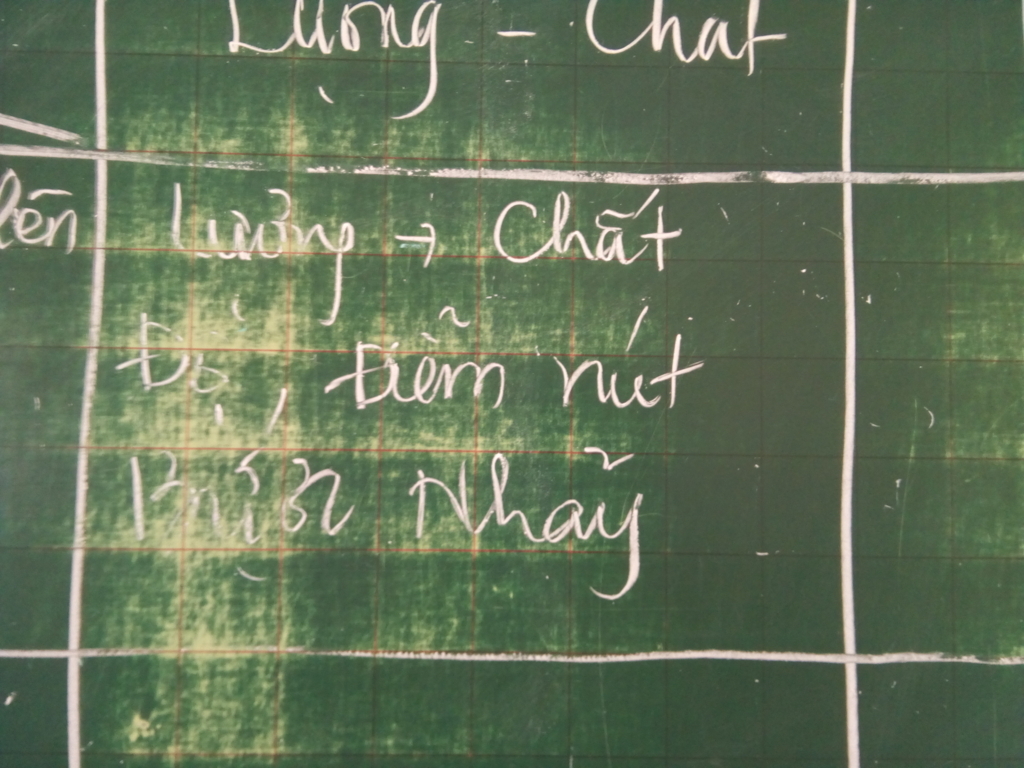 Lượng - Chất
lên Lượng → Chất
Độ, Điểm nút
Bước Nhảy